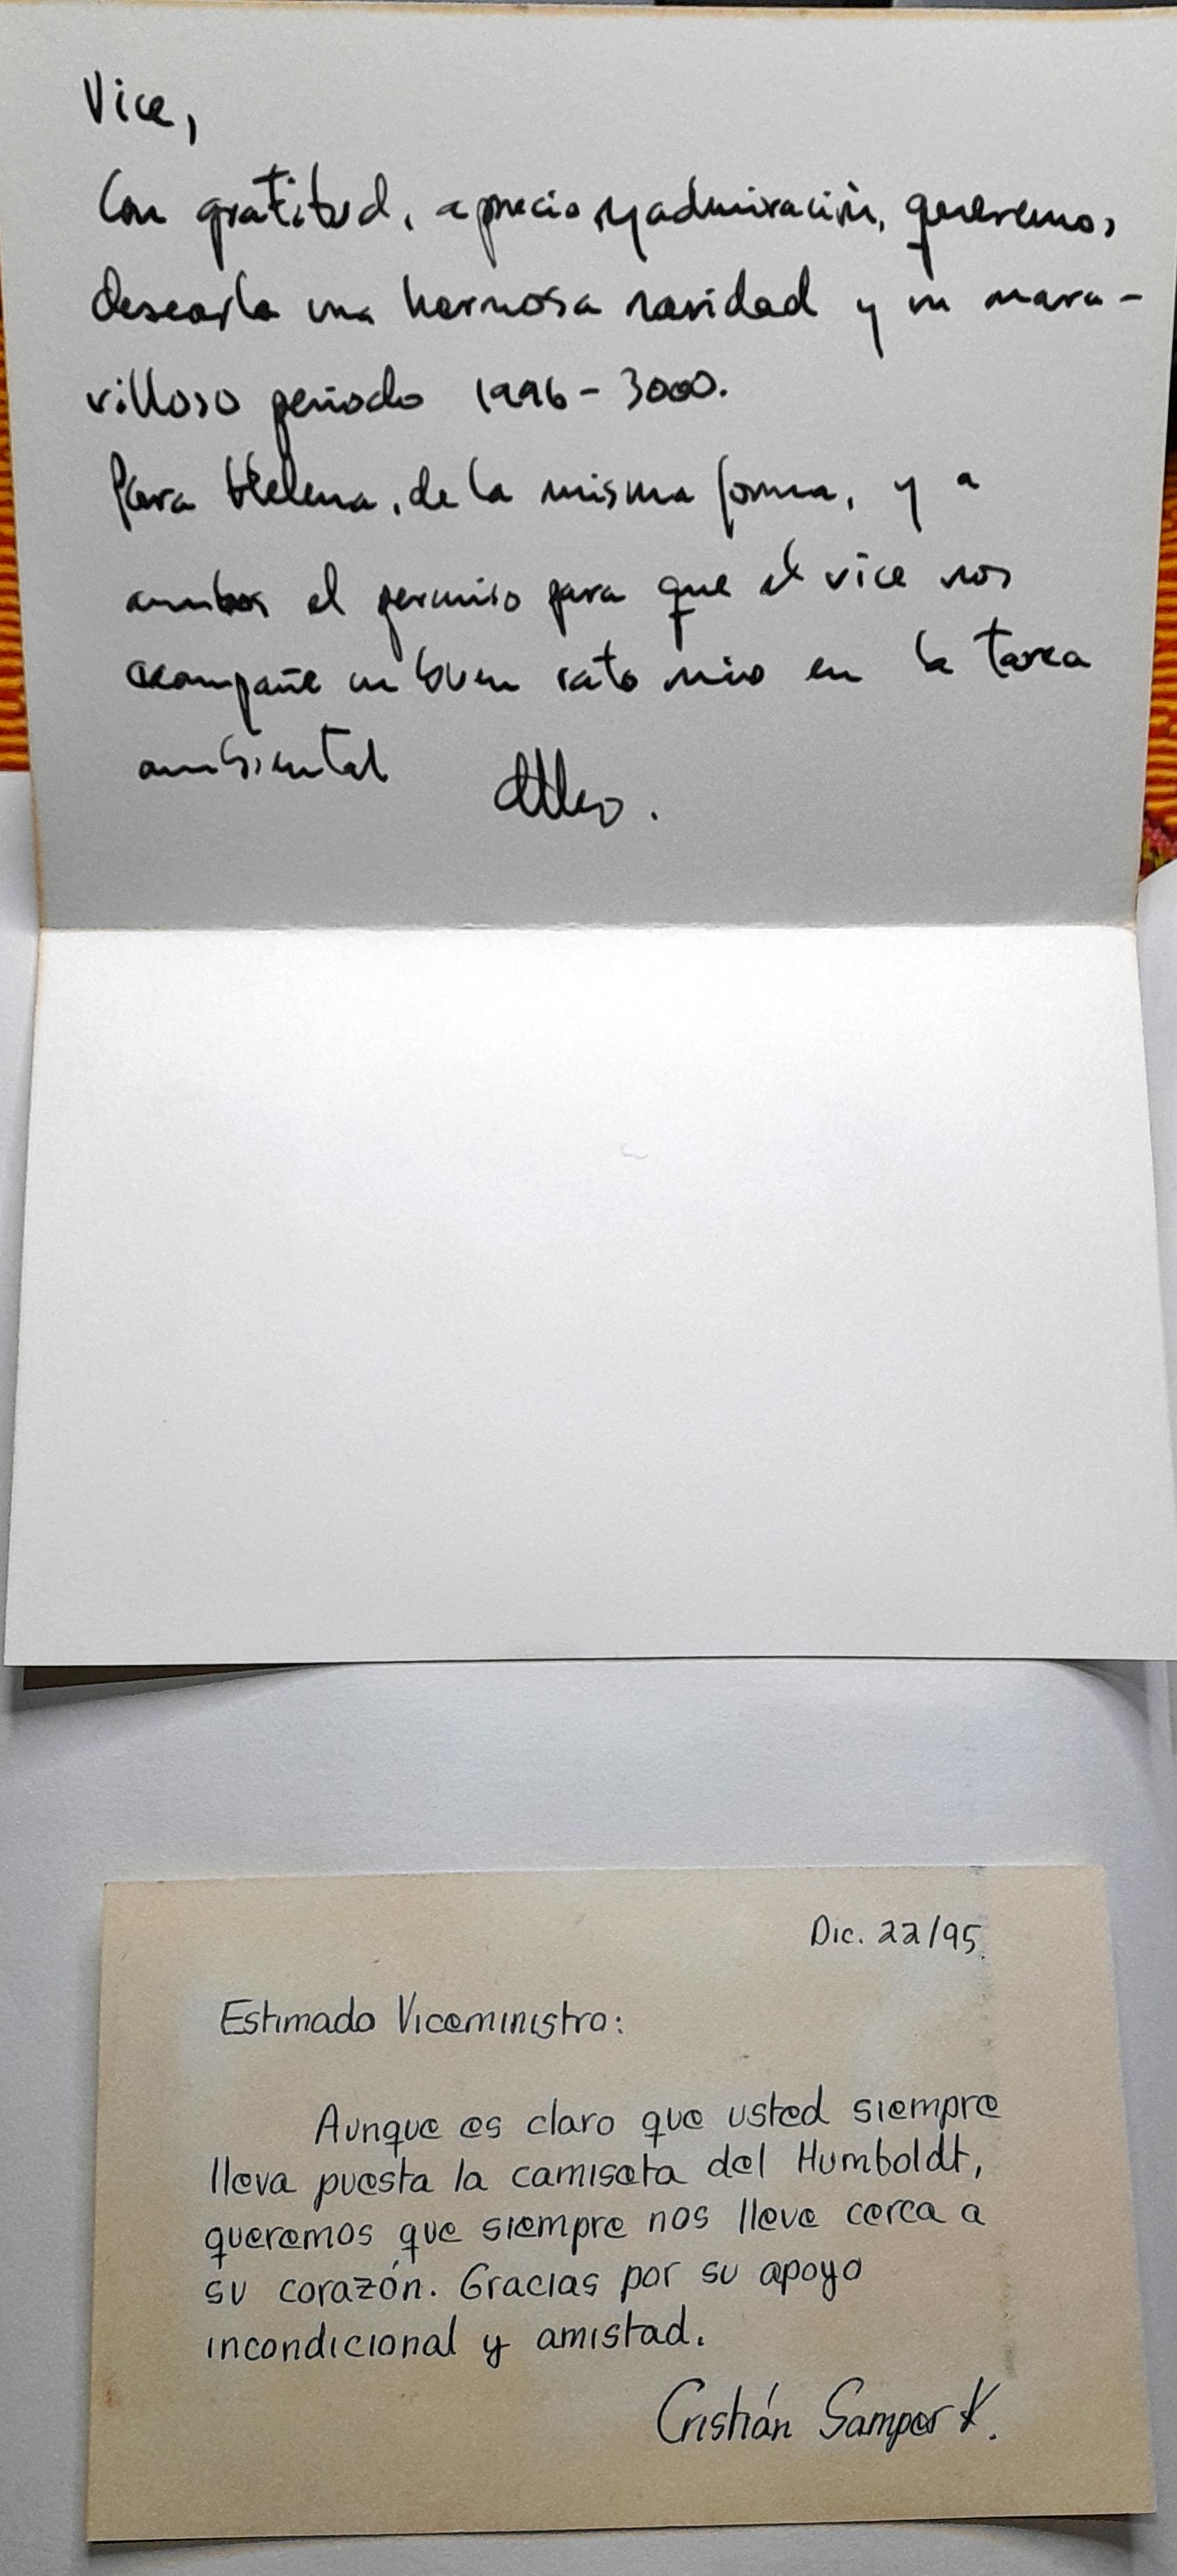 Vice,
Con gratitud, aprecio y admiración, queremos
desearle una hermosa navidad y un mara-
villoso periodo 1996-3000.
Para Helena, de la misma forma, y a
ambos el permiso para que el vice nos
acompañe un buen rato más en la tarea
ambiental
Dic. 22/95
Estimado Viceministro:
Aunque es claro que usted siempre
lleva puesta la camiseta del Humboldt,
queremos que siempre nos lleve cerca a
su corazón. Gracias por su apoyo
incondicional y amistad.
Cristián Samper K.